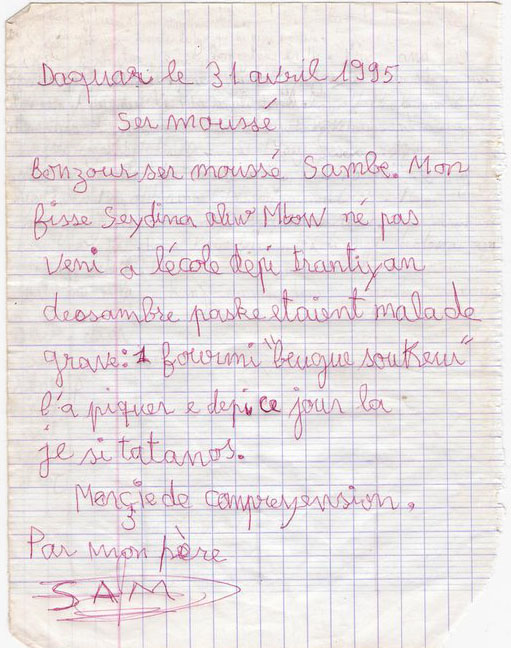 Daquar le 31 avril 1995
Ser moussé
Bonzour ser moussé Sambe. Mon
fisse Seydina aliw Mbow né pas
veni a lécole depi trantiyan
deosambre paske etaient malade
grave: 1 fourmi "beugue soukeur"
l'a piquer e depi ce jour la
je si tatanos.
Morçie de compreyension.
3
Par mon père
SAM